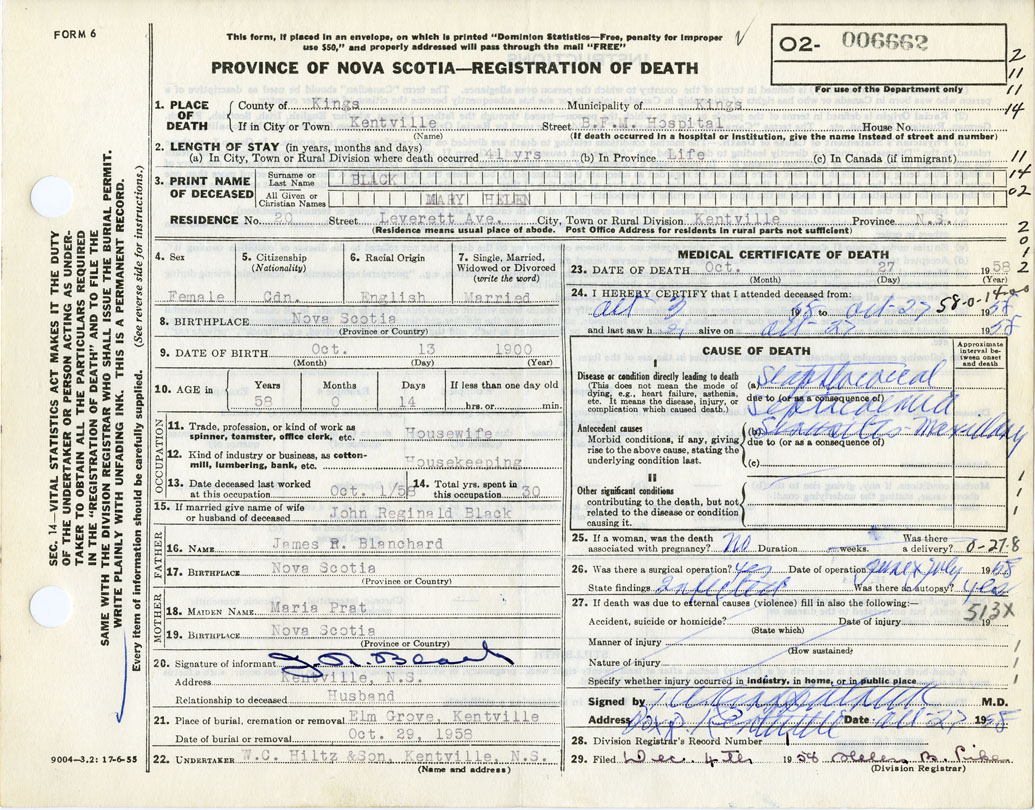 FORM 6
This form, if placed in an envelope, on which is printed "Dominion Statistics—Free, penalty for improper
use $50," and properly addressed will pass through the mail "FREE"
O2- 006662
For use of the Department only
PROVINCE OF NOVA SCOTIA—REGISTRATION OF DEATH
1. PLACE OF DEATH
County of Kings Municipality of Kings
If in City or Town Kentville Street B.F.M. Hospital House No.
(Name) (If death occurred in a hospital or Institution, give the name instead of street and number)
2. LENGTH OF STAY (in years, months and days)
(a) In City, Town or Rural Division where death occurred 41 yrs (b) In Province Life (c) In Canada (if immigrant)
3. PRINT NAME OF DECEASED
Surname or Last Name BLACK
All Given or Christian Names MARY HELEN
RESIDENCE No. 20 Street Leverett Ave. City, Town or Rural Division Kentville Province N.S.
(Residence means usual place of abode. Post Office Address for residents in rural parts not sufficient)
4. Sex
Female
5. Citizenship
(Nationality)
Cdn.
6. Racial Origin
English
7. Single, Married,
Widowed or Divorced
(write the word)
Married
8. BIRTHPLACE Nova Scotia
(Province or Country)
9. DATE OF BIRTH Oct. 13 1900
(Month) (Day) (Year)
10. AGE in
Years Months Days If less than one day old
58 0 14 hrs. or min.
OCCUPATION
11. Trade, profession, or kind of work as
spinner, teamster, office clerk, etc. Housewife
12. Kind of industry or business, as cotton-
mill, lumbering, bank, etc. Housekeeping
13. Date deceased last worked
at this occupation Oct. 1/58
14. Total yrs. spent in
this occupation 30
15. If married give name of wife
or husband of deceased John Reginald Black
FATHER
16. NAME James R. Blanchard
17. BIRTHPLACE Nova Scotia
(Province or Country)
MOTHER
18. MAIDEN NAME Maria Prat
19. BIRTHPLACE Nova Scotia
(Province or Country)
20. Signature of informant J. R. Black
Address Kentville, N.S.
Relationship to deceased Husband
21. Place of burial, cremation or removal Elm Grove, Kentville
Date of burial or removal Oct. 29, 1958
22. UNDERTAKER W.C. Hiltz &Son, Kentville, N.S.
(Name and address)
MEDICAL CERTIFICATE OF DEATH
23. DATE OF DEATH Oct. 27 1958
(Month) (Day) (Year)
24. I HEREBY CERTIFY that I attended deceased from:
Oct 3 1958 to Oct-27 1958
58-0-14-00
and last saw h er alive on Oct-27 1958
CAUSE OF DEATH
Approximate
interval be-
tween onset
and death
I
Disease or condition directly leading to death
(This does not mean the mode of
dying, e.g., heart failure, asthenia,
etc. It means the disease, injury, or
complication which caused death.)
(a)
due to (or as a consequence of)
Septicaemia
Antecedent causes
Morbid conditions, if any, giving
rise to the above cause, stating the
underlying condition last.
(b) Maxillary
due to (or as a consequence of)
(c)
II
Other significant conditions
contributing to the death, but not
related to the disease or condition
causing it.
25. If a woman, was the death
associated with pregnancy? No Duration weeks. Was there
a delivery? 0-27-8
26. Was there a surgical operation? yes Date of operation June & July 1958
State findings Infected Was there an autopsy? Yes
27. If death was due to external causes (violence) fill in also the following:—
513X
Accident, suicide or homicide? Date of injury 19
(State which)
Manner of injury
(How sustained)
Nature of injury
Specify whether injury occurred in industry, in home, or in public place
Signed by M.D.
Address Kentville Date Oct-27 1958
28. Division Registrar's Record Number
29. Filed Dec. 4th 1958 Helen B. Pike
(Division Registrar)
SEC. 14—VITAL STATISTICS ACT MAKES IT THE DUTY
OF THE UNDERTAKER OR PERSON ACTING AS UNDER-
TAKER TO OBTAIN ALL THE PARTICULARS REQUIRED
IN THE "REGISTRATION OF DEATH" AND TO FILE THE
SAME WITH THE DIVISION REGISTRAR WHO SHALL ISSUE THE BURIAL PERMIT.
WRITE PLAINLY WITH UNFADING INK. THIS IS A PERMANENT RECORD.
Every item of information should be carefully supplied. (See reverse side for instructions.)
9004—3.2: 17-6-55
2
11
11
14
11
14
02
2
0
1
2
1
1
1
1
1
1